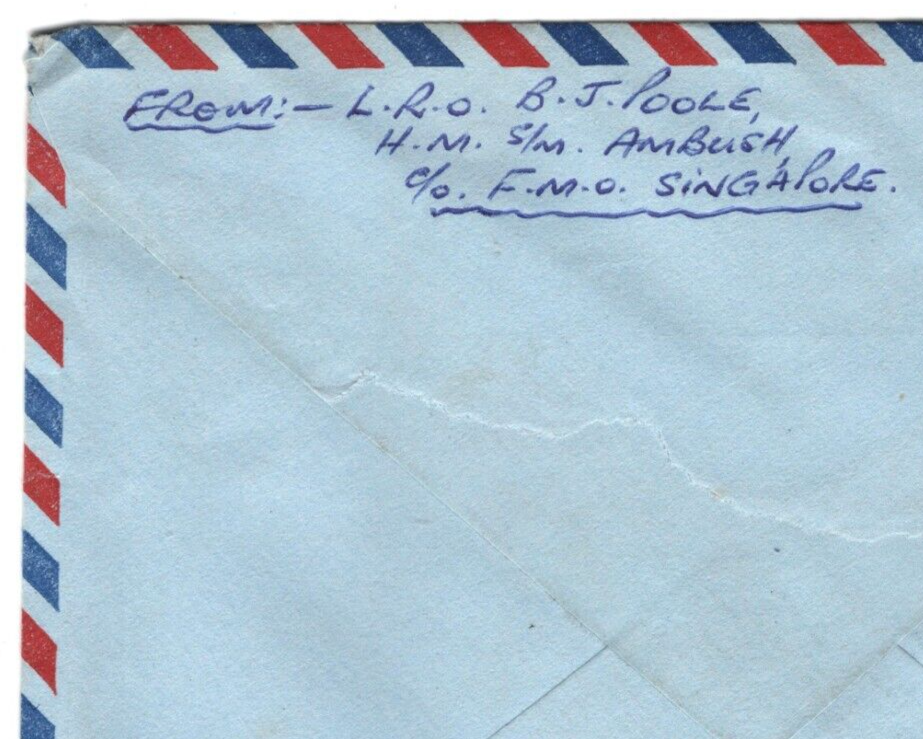 FROM:- L.R.O. B.J. POOLE,
H.M. S/M. AMBUSH,
c/o. F.M.O. SINGAPORE.